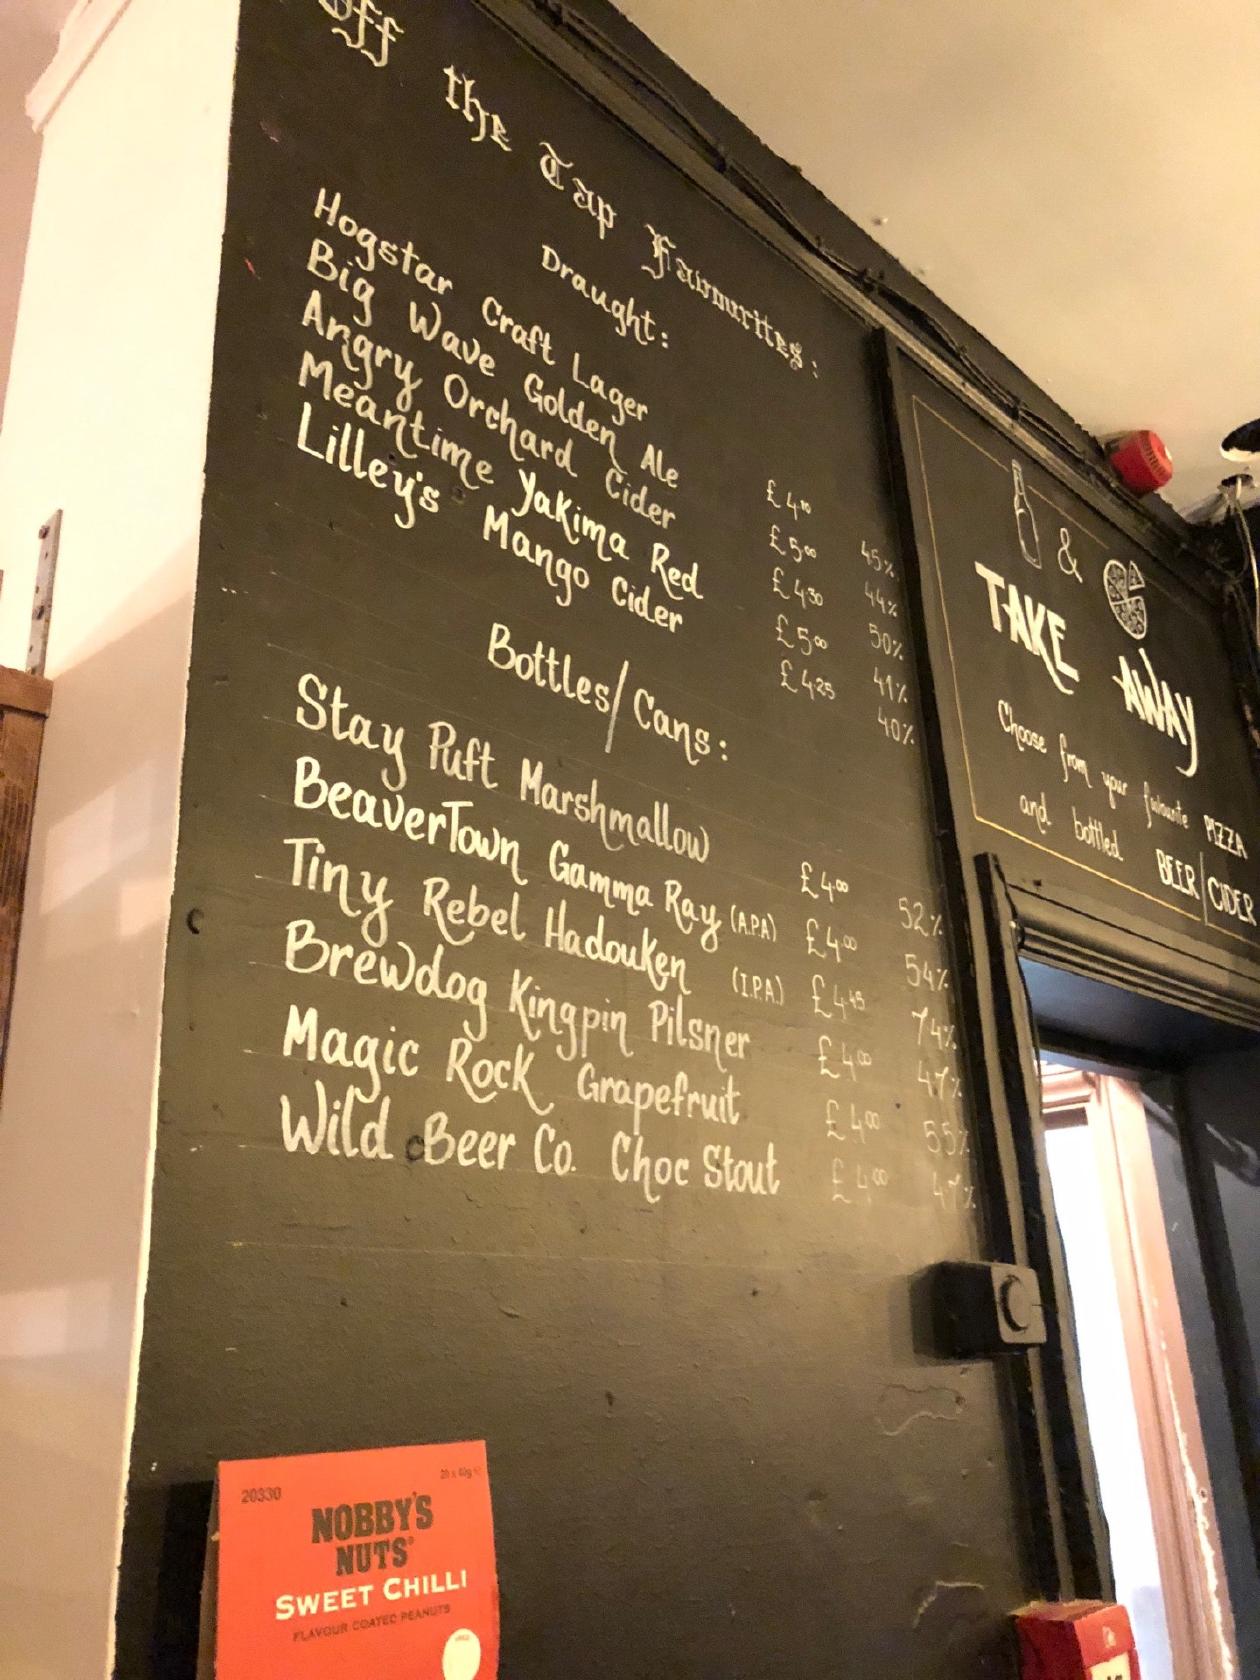 Off the Tap Favourites:
Draught:
Hogstar Craft Lager £4.00 45%
Big Wave Golden Ale £5.00 44%
Angry Orchard Cider £4.30 50%
Meantime Yakima Red £5.00 41%
Lilley's Mango Cider £4.25 40%
Bottles/Cans:
Stay Puft Marshmallow £4.00 52%
BeaverTown Gamma Ray (A.P.A) £4.00 54%
Tiny Rebel Hadouken (I.P.A.) £4.45 74%
Brewdog Kingpin Pilsner £4.00 47%
Magic Rock Grapefruit £4.00 55%
Wild Beer Co. Choc Stout £4.00 47%
&
TAKE AWAY
Choose from your favourite PIZZA
and bottled BEER/CIDER
20330
NOBBY'S
NUTS
SWEET CHILLI
FLAVOUR COATED PEANUTS